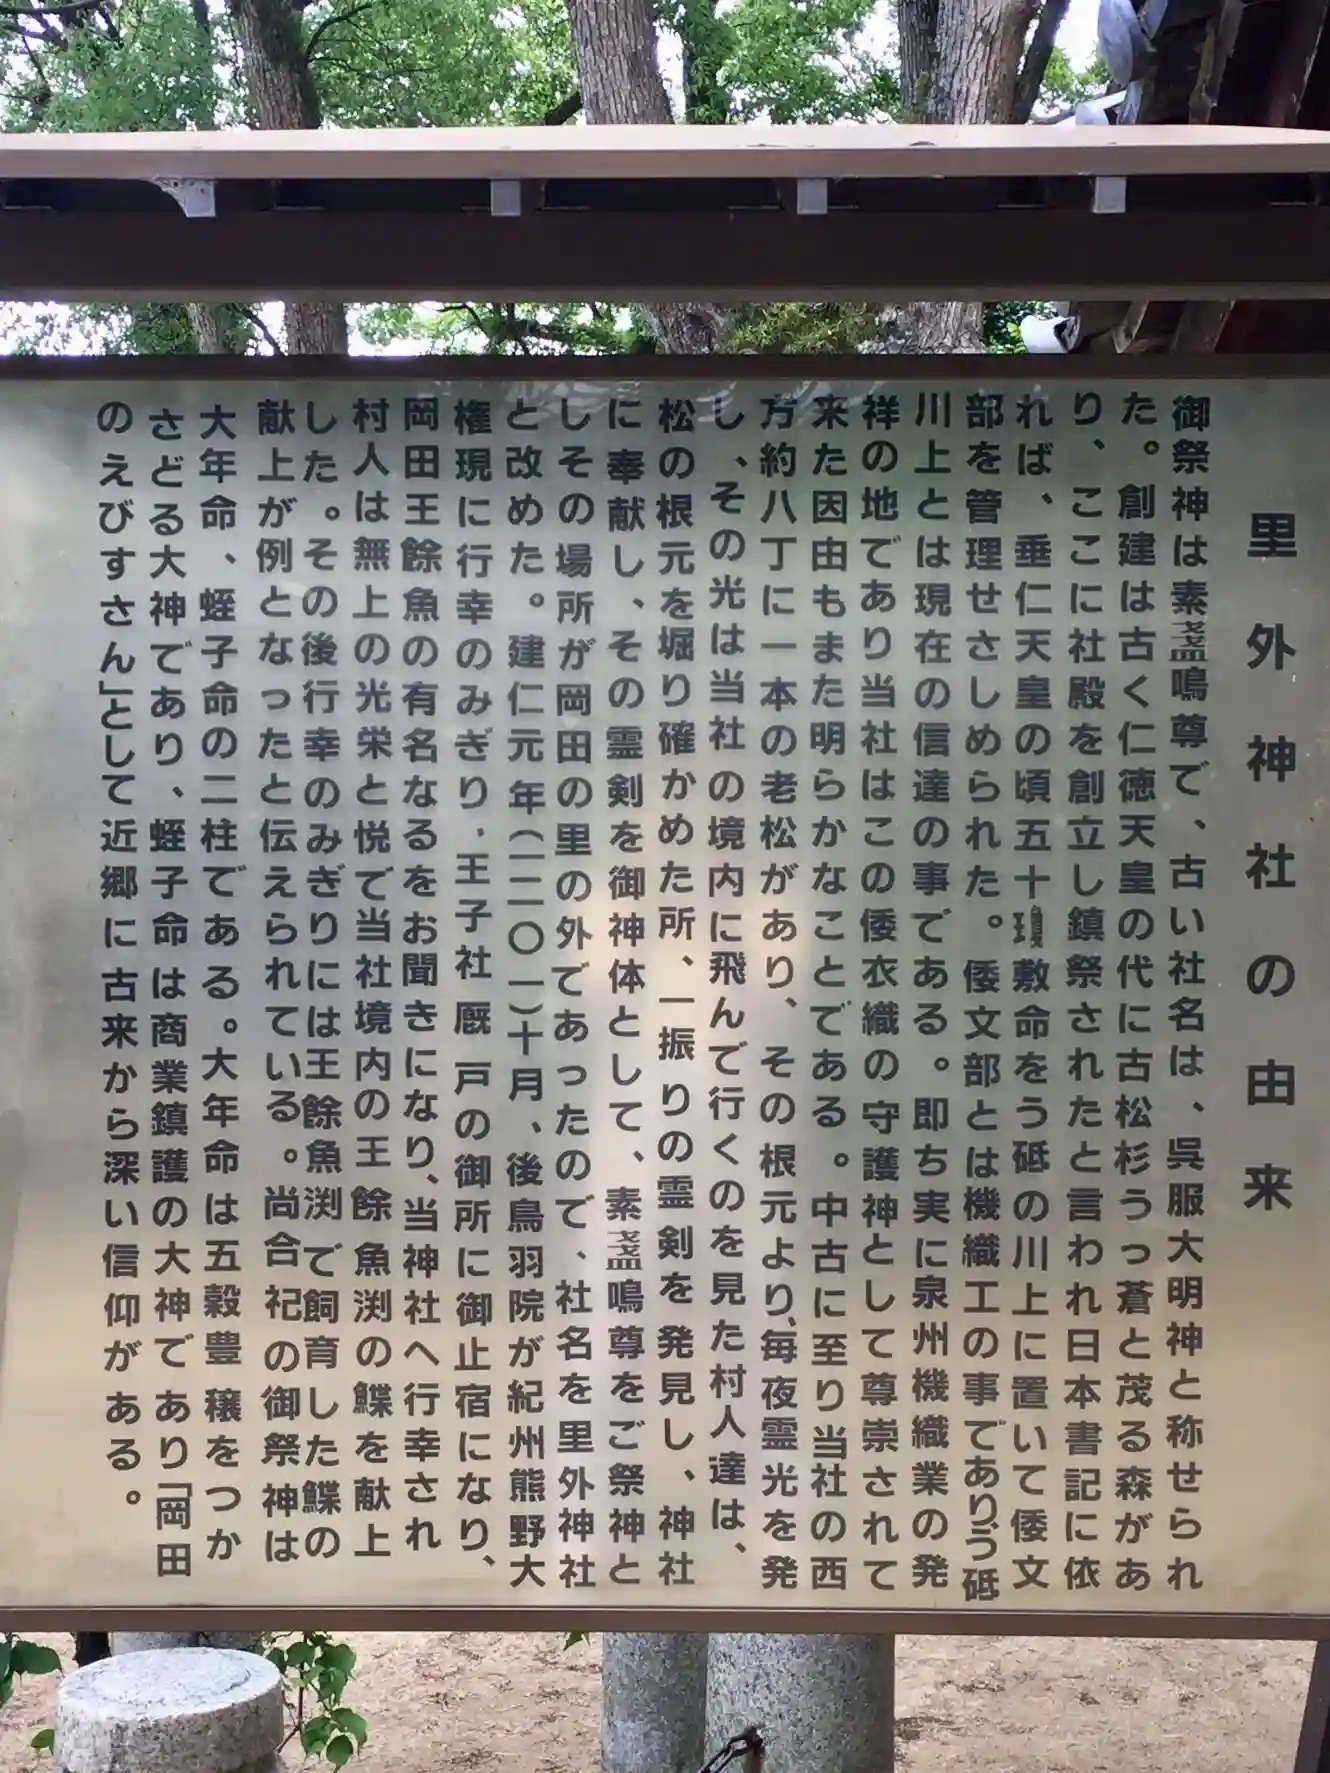 里外神社の由来
御祭神は素盞鳴尊で、古い社名は、呉服大明神と称せられ
た。創建は古く仁徳天皇の代に古松杉うっ蒼と茂る森があ
り、ここに社殿を創立し鎮祭されたと言われ日本書記に依
れば、垂仁天皇の頃五十瓊敷命をう砥の川上に置いて倭文
部を管理せさしめられた。倭文部とは機織工の事でありう砥
川上とは現在の信達の事である。即ち実に泉州機織業の発
祥の地であり当社はこの倭衣織の守護神として尊崇されて
来た因由もまた明らかなことである。中古に至り当社の西
方約八丁に一本の老松があり、その根元より、毎夜霊光を発
し、その光は当社の境内に飛んで行くのを見た村人達は、
松の根元を堀り確かめた所、一振りの霊剣を発見し、神社
に奉献し、その霊剣を御神体として、素盞鳴尊をご祭神と
しその場所が岡田の里の外であったので、社名を里外神社
と改めた。建仁元年(一二〇一)十月、後鳥羽院が紀州熊野大
権現に行幸のみぎり・王子社厩戸の御所に御止宿になり、
岡田王餘魚の有名なるをお聞きになり、当神社へ行幸され
村人は無上の光栄と悦で当社境内の王餘魚渕の鰈を献上
した。その後行幸のみぎりには王餘魚渕で飼育した鰈の
献上が例となったと伝えられている。尚合祀の御祭神は
大年命、蛭子命の二柱である。大年命は五穀豊穣をつか
さどる大神であり、蛭子命は商業鎮護の大神であり「岡田
のえびすさん」として近郷に古来から深い信仰がある。